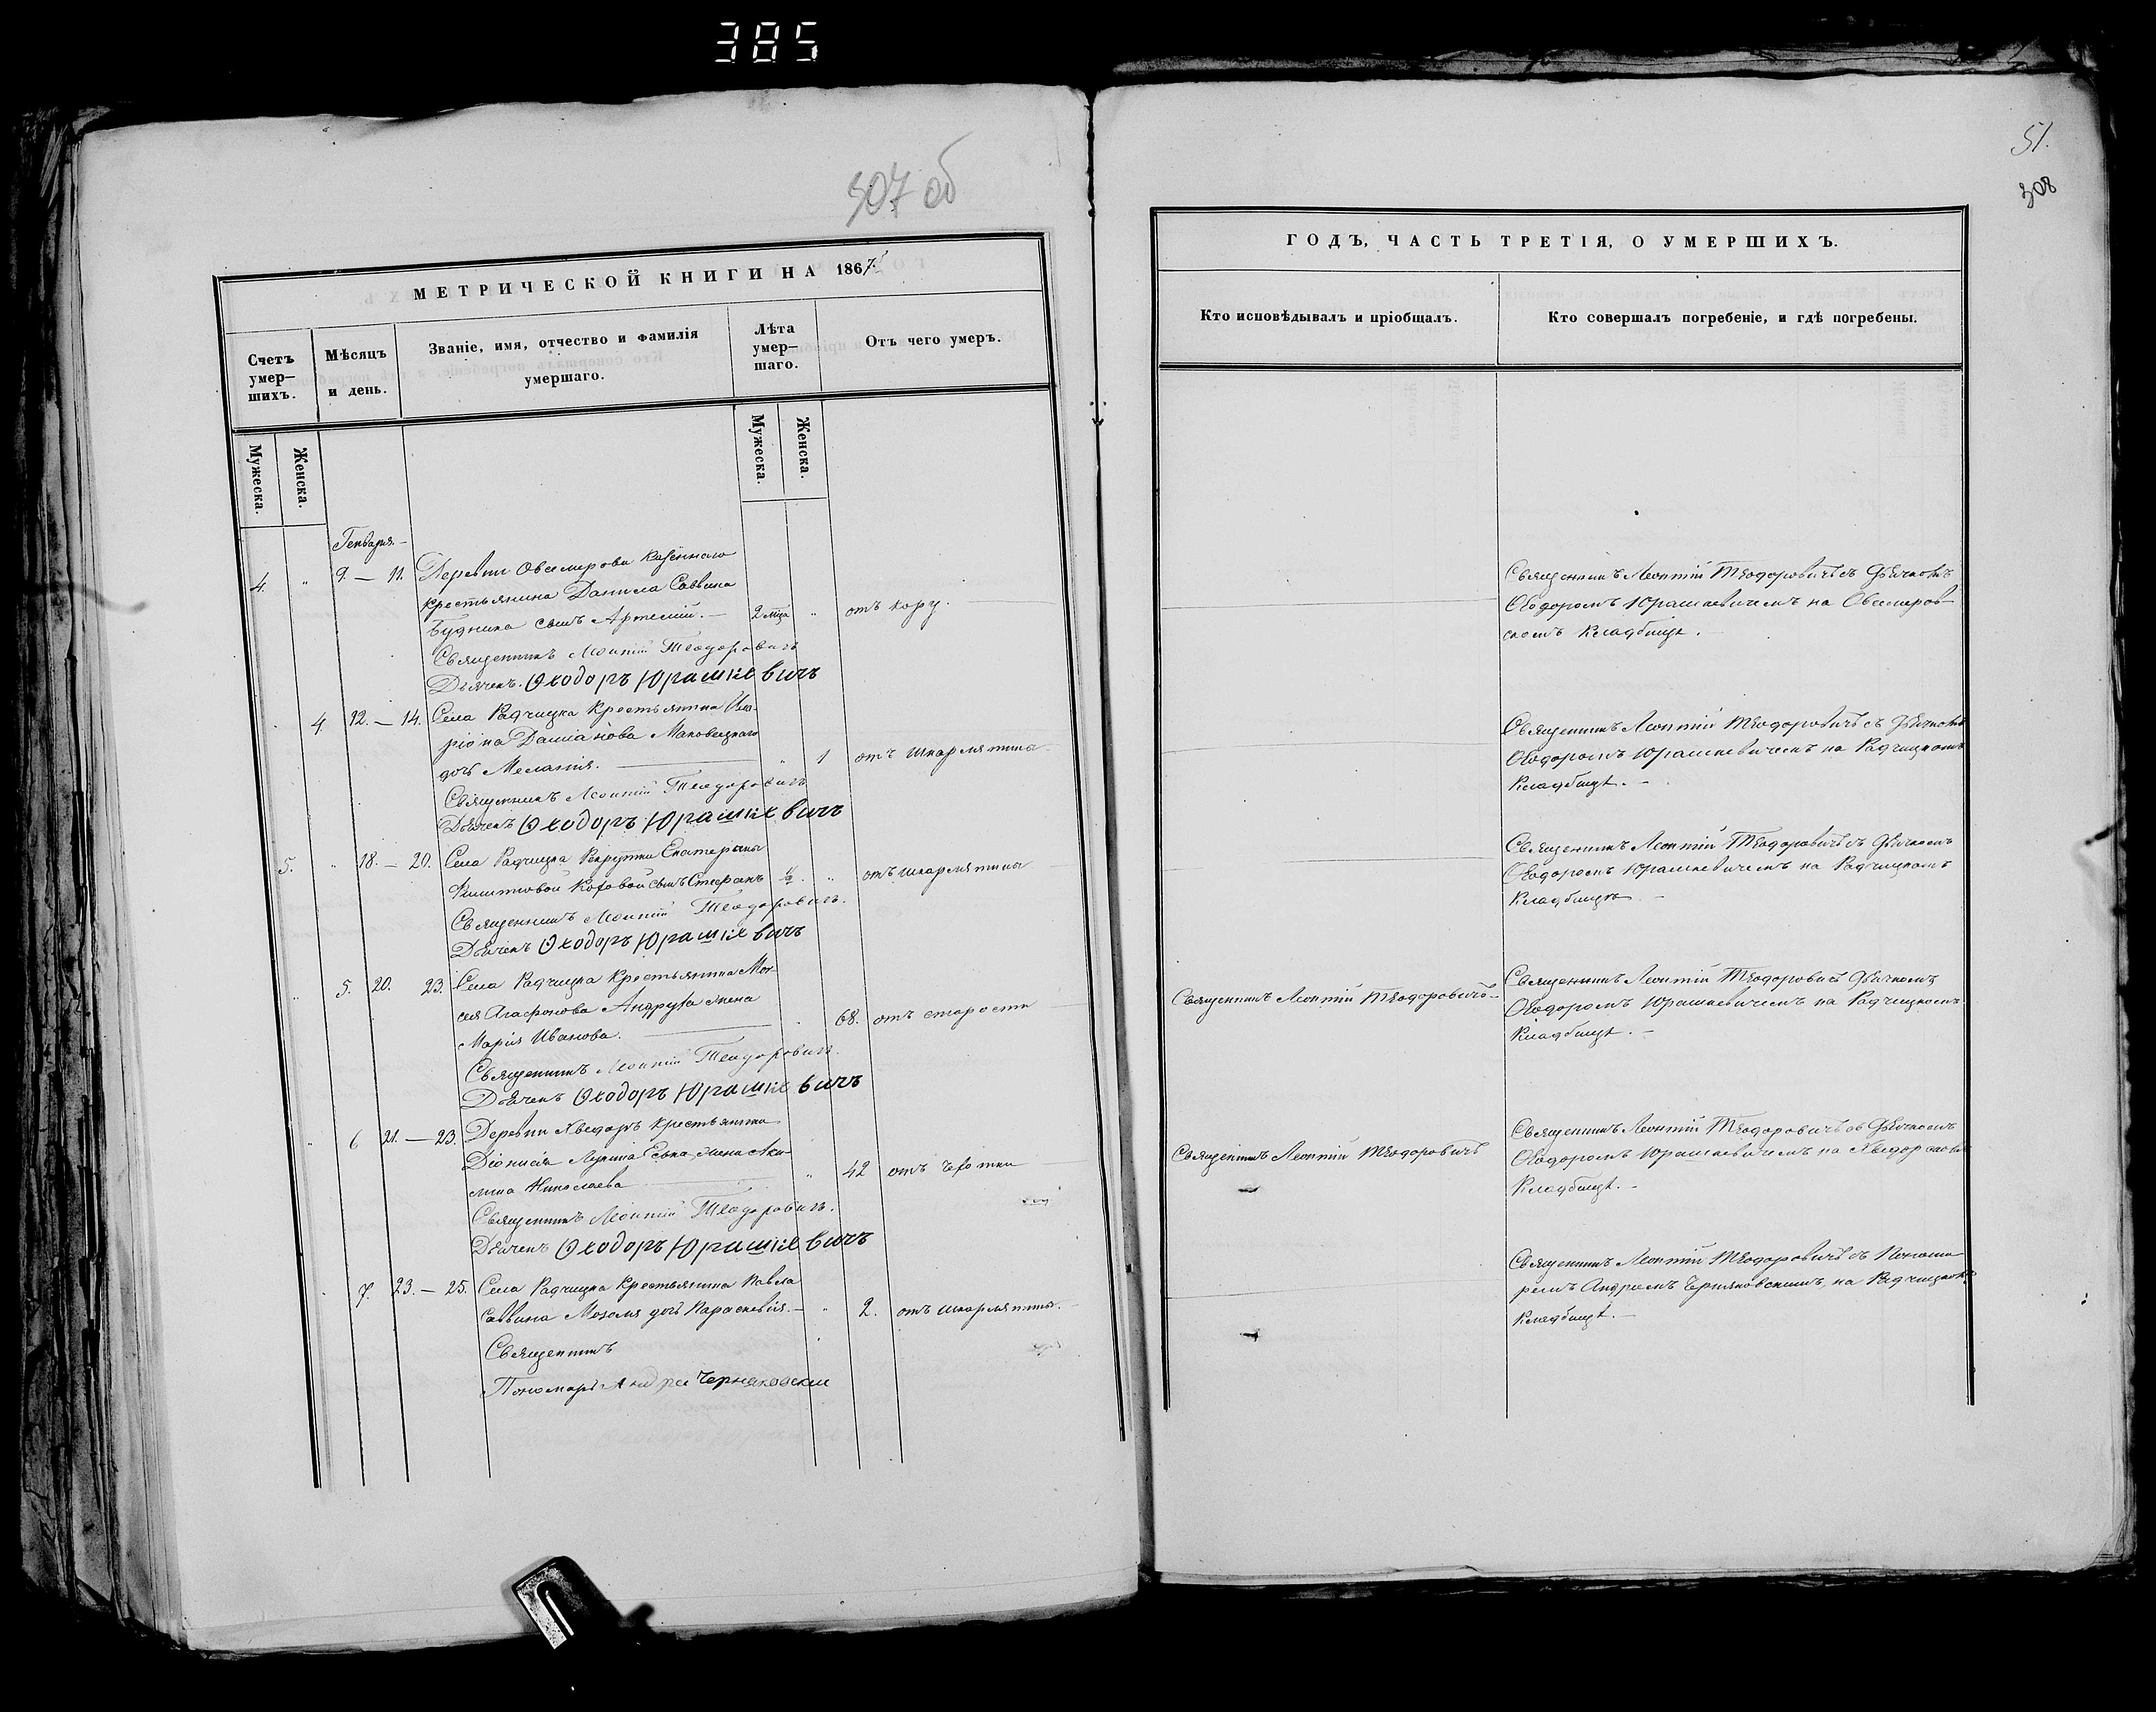 385
307 об
МЕТРИЧЕСКОЙ КНИГИ НА 1867.
Счетъ умер-
шихъ.
Мѣсяцъ
и день.
Званіе, имя, отчество и фамилія
умершаго.
Лѣта
умер-
шаго.
Отъ чего умеръ.
Мужеска.
Женска.
Мужеска.
Женска.
Генваря.
4. " 9. — 11. Деревни Овсемирова казённаго
крестьянина Данила Саввина
Будника сынъ Артемій. — 2 мца " отъ кору.
Священникъ Леонтій Теодоровичъ
Дьячекъ Ѳеодоръ Юрашкевичъ
4. 12. — 14. Села Радчицка крестьянина Ила-
ріона Даміанова Маковецкаго
дочь Меланія. " 1 отъ шкарлятины
Священникъ Леонтій Теодоровичъ
Дьячекъ Ѳеодоръ Юрашкевичъ
5. " 18. — 20. Села Радчицка Рекрутки Екатерины
сынъ Стефанъ ½. " отъ шкарлятины
Священникъ Леонтій Теодоровичъ.
Дьячекъ Ѳеодоръ Юрашкевичъ
" 5. 20. 23. Села Радчицка крестьянина Мои-
сея Агафонова жена
Марія Иванова. 68. отъ старости
Священникъ Леонтій Теодоровичъ.
Дьячекъ Ѳеодоръ Юрашкевичъ
" 6 21. — 23. Деревни Хведоръ крестьянина
Діонисія жена Аку-
лина Николаева " 42 отъ чахотки
Священникъ Леонтій Теодоровичъ.
Дьячекъ Ѳеодоръ Юрашкевичъ
7. 23. — 25. Села Радчицка крестьянина Павла
Саввина Мозоля дочь Параскевія. — " 2. отъ шкарлятины.
Священникъ
Пономарь Андрей Черняковскій
51.
308
ГОДЪ, ЧАСТЬ ТРЕТІЯ, О УМЕРШИХЪ.
Кто исповѣдывалъ и пріобщалъ.
Кто совершалъ погребеніе, и гдѣ погребены.
Священникъ Леонтій Теодоровичъ съ Дьячкомъ
Ѳеодоромъ Юрашкевичемъ на Овсемиров-
скомъ кладбищѣ.
Священникъ Леонтій Теодоровичъ съ Дьячкомъ
Ѳеодоромъ Юрашкевичемъ на Радчицкомъ
кладбищѣ. —
Священникъ Леонтій Теодоровичъ съ Дьячкомъ
Ѳеодоромъ Юрашкевичемъ на Радчицкомъ
кладбищѣ —
Священникъ Леонтій Теодоровичъ —
Священникъ Леонтій Теодоровичъ Дьячкомъ
Ѳеодоромъ Юрашкевичемъ на Радчицкомъ
кладбищѣ. —
Священникъ Леонтій Теодоровичъ
Священникъ Леонтій Теодоровичъ съ Дьячкомъ
Ѳеодоромъ Юрашкевичемъ на Хведорскомъ
кладбищѣ. —
Священникъ Леонтій Теодоровичъ съ Понома-
ремъ Андреемъ Черняковскимъ, на Радчицкомъ
кладбищѣ. —